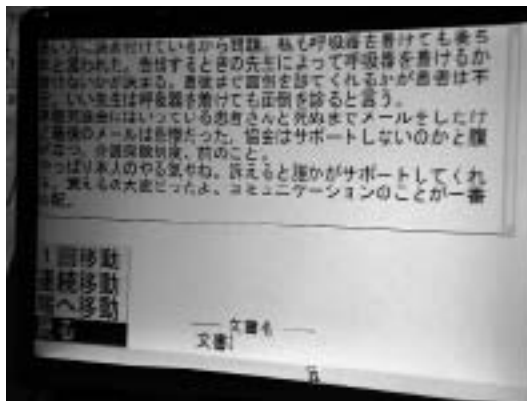 い方に決め付けているから問題。私も呼吸器を着けても楽ち
と言われた。告知するときの先生によって呼吸器を着けるか
着けないかが決まる。最後まで面倒を診てくれるかが患者は不
。いい先生は呼吸器を着けても面倒を診ると言う。
協会にはいっている患者さんと死ぬまでメールをしたけ
最後のメールは悲惨だった。協会はサポートしないのかと腹
が立つ。介護保険制度、前のこと。
やっぱり本人のやる気やね。訴えると誰かがサポートしてくれ
。覚えるの大変だったよ、コミュニケーションのことが一番
1回移動
連続移動
へ移動
文書名
文書